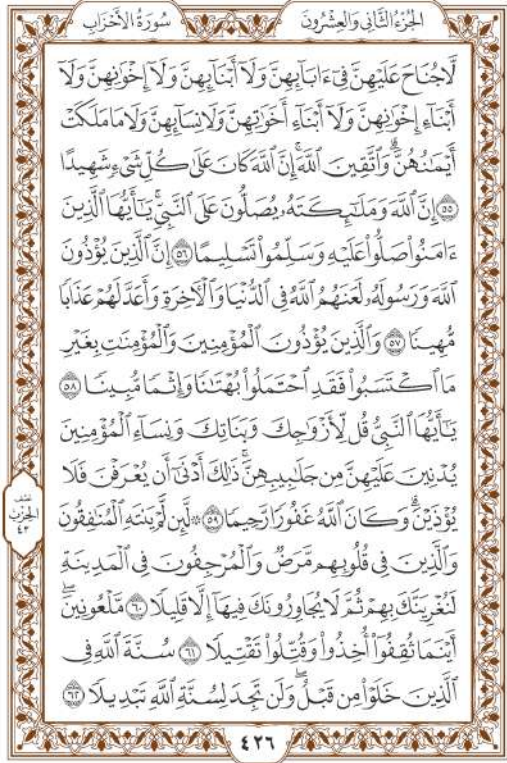 الجُزْءُ الثَّانِي وَالعِشْرُونَ
سُورَةُ الأَحْزَابِ
لَّا جُنَاحَ عَلَيْهِنَّ فِيٓ ءَابَآئِهِنَّ وَلَآ أَبْنَآئِهِنَّ وَلَآ إِخْوَٰنِهِنَّ وَلَآ
أَبْنَآءِ إِخْوَٰنِهِنَّ وَلَآ أَبْنَآءِ أَخَوَٰتِهِنَّ وَلَا نِسَآئِهِنَّ وَلَا مَا مَلَكَتْ
أَيْمَٰنُهُنَّۗ وَٱتَّقِينَ ٱللَّهَۚ إِنَّ ٱللَّهَ كَانَ عَلَىٰ كُلِّ شَيْءٖ شَهِيدًا
٥٥ إِنَّ ٱللَّهَ وَمَلَٰٓئِكَتَهُۥ يُصَلُّونَ عَلَى ٱلنَّبِيِّۚ يَٰٓأَيُّهَا ٱلَّذِينَ
ءَامَنُواْ صَلُّواْ عَلَيْهِ وَسَلِّمُواْ تَسْلِيمًا ٥٦ إِنَّ ٱلَّذِينَ يُؤْذُونَ
ٱللَّهَ وَرَسُولَهُۥ لَعَنَهُمُ ٱللَّهُ فِي ٱلدُّنْيَا وَٱلْأٓخِرَةِ وَأَعَدَّ لَهُمْ عَذَابًا
مُّهِينًا ٥٧ وَٱلَّذِينَ يُؤْذُونَ ٱلْمُؤْمِنِينَ وَٱلْمُؤْمِنَٰتِ بِغَيْرِ
مَا ٱكْتَسَبُواْ فَقَدِ ٱحْتَمَلُواْ بُهْتَٰنًا وَإِثْمًا مُّبِينًا ٥٨
يَٰٓأَيُّهَا ٱلنَّبِيُّ قُل لِّأَزْوَٰجِكَ وَبَنَاتِكَ وَنِسَآءِ ٱلْمُؤْمِنِينَ
يُدْنِينَ عَلَيْهِنَّ مِن جَلَٰبِيبِهِنَّۚ ذَٰلِكَ أَدْنَىٰٓ أَن يُعْرَفْنَ فَلَا
يُؤْذَيْنَۗ وَكَانَ ٱللَّهُ غَفُورًا رَّحِيمًا ٥٩ ۞ لَّئِن لَّمْ يَنتَهِ ٱلْمُنَٰفِقُونَ
وَٱلَّذِينَ فِي قُلُوبِهِم مَّرَضٌ وَٱلْمُرْجِفُونَ فِي ٱلْمَدِينَةِ
لَنُغْرِيَنَّكَ بِهِمْ ثُمَّ لَا يُجَاوِرُونَكَ فِيهَآ إِلَّا قَلِيلًا ٦٠ مَّلْعُونِينَۖ
أَيْنَمَا ثُقِفُوٓاْ أُخِذُواْ وَقُتِّلُواْ تَقْتِيلًا ٦١ سُنَّةَ ٱللَّهِ فِي
ٱلَّذِينَ خَلَوْاْ مِن قَبْلُۖ وَلَن تَجِدَ لِسُنَّةِ ٱللَّهِ تَبْدِيلًا ٦٢
نصف
الحزب
٤٣
٤٢٦